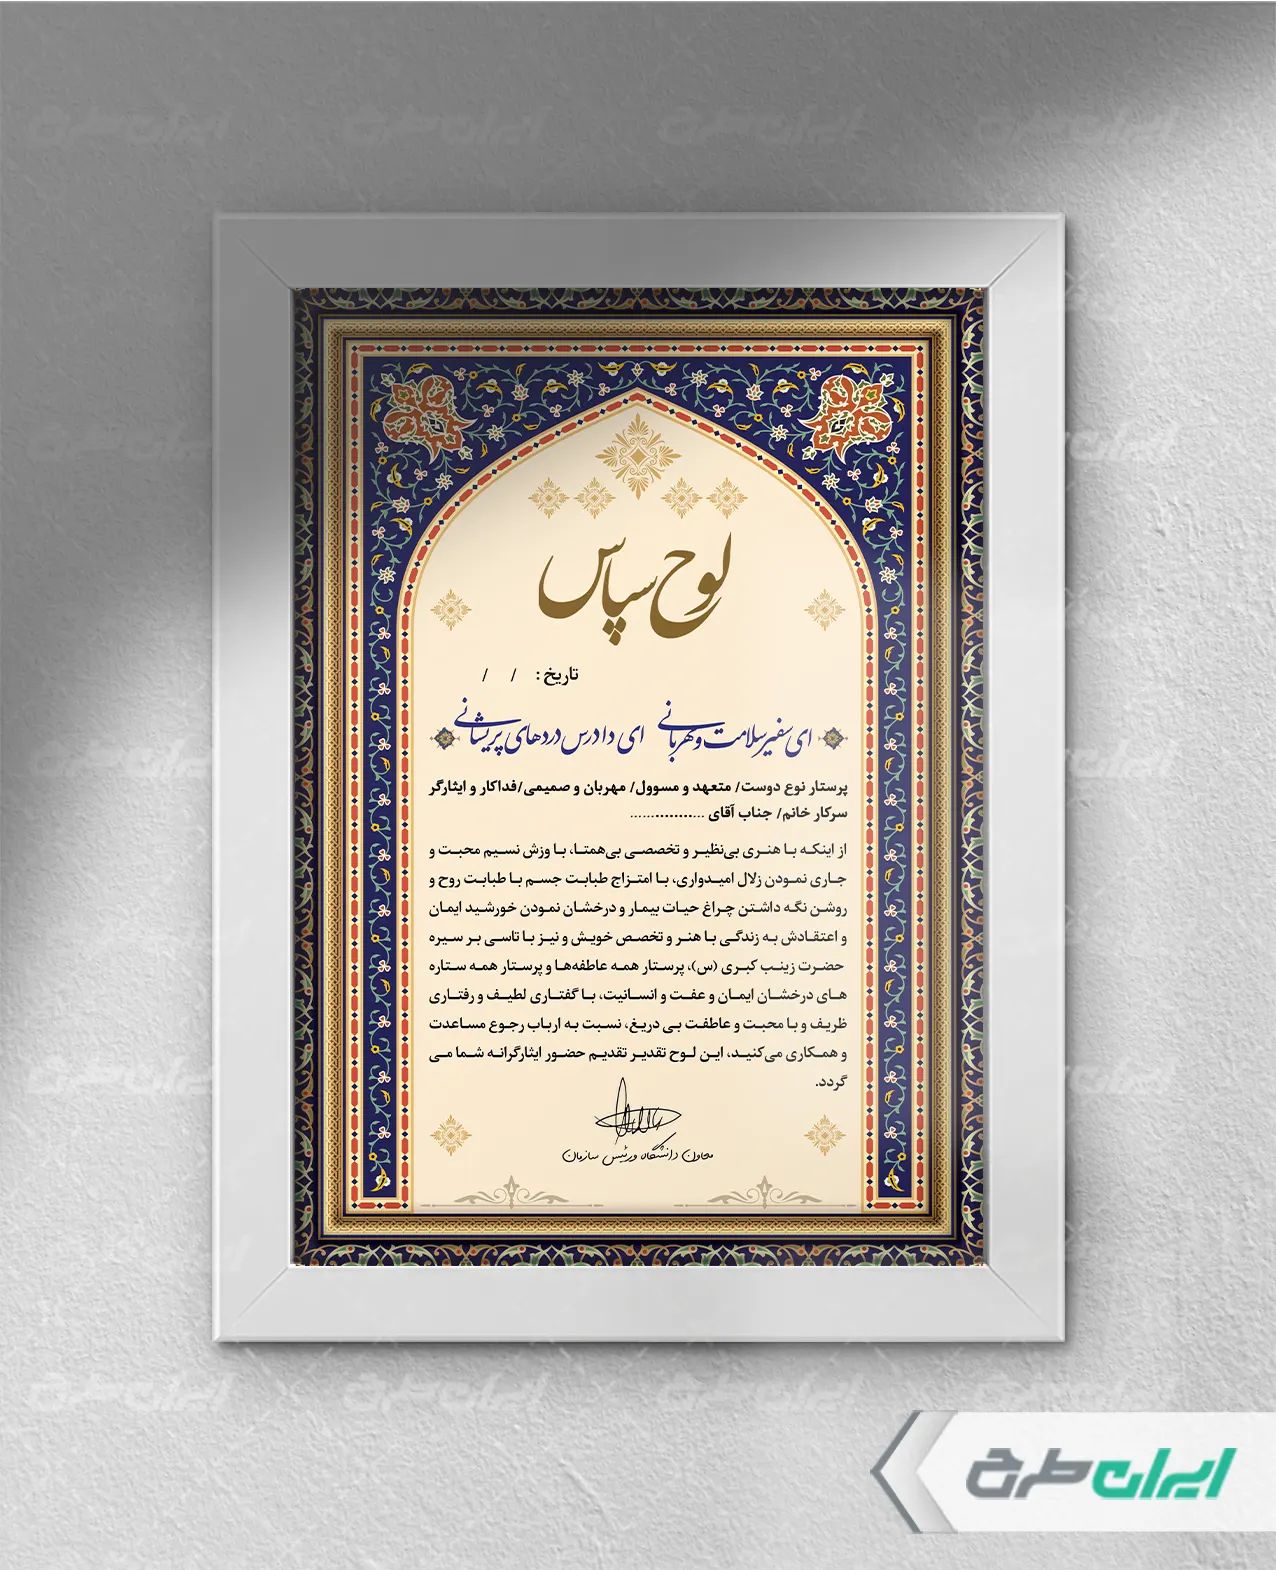 لوح سپاس
تاریخ :    /    /
ای سفیر سلامت و مهربانی    ای دادرس دردهای پریشانی
پرستار نوع دوست/ متعهد و مسوول/ مهربان و صمیمی/فداکار و ایثارگر
سرکار خانم/ جناب آقای ..................
از اینکه با هنری بی‌نظیر و تخصصی بی‌همتا، با وزش نسیم محبت و
جاری نمودن زلال امیدواری، با امتزاج طبابت جسم با طبابت روح و
روشن نگه داشتن چراغ حیات بیمار و درخشان نمودن خورشید ایمان
و اعتقادش به زندگی با هنر و تخصص خویش و نیز با تاسی بر سیره
حضرت زینب کبری (س)، پرستار همه عاطفه‌ها و پرستار همه ستاره
های درخشان ایمان و عفت و انسانیت، با گفتاری لطیف و رفتاری
ظریف و با محبت و عاطفت بی دریغ، نسبت به ارباب رجوع مساعدت
و همکاری می‌کنید، این لوح تقدیر تقدیم حضور ایثارگرانه شما می
گردد.
معاون دانشگاه و رئیس سازمان
ایران طرح